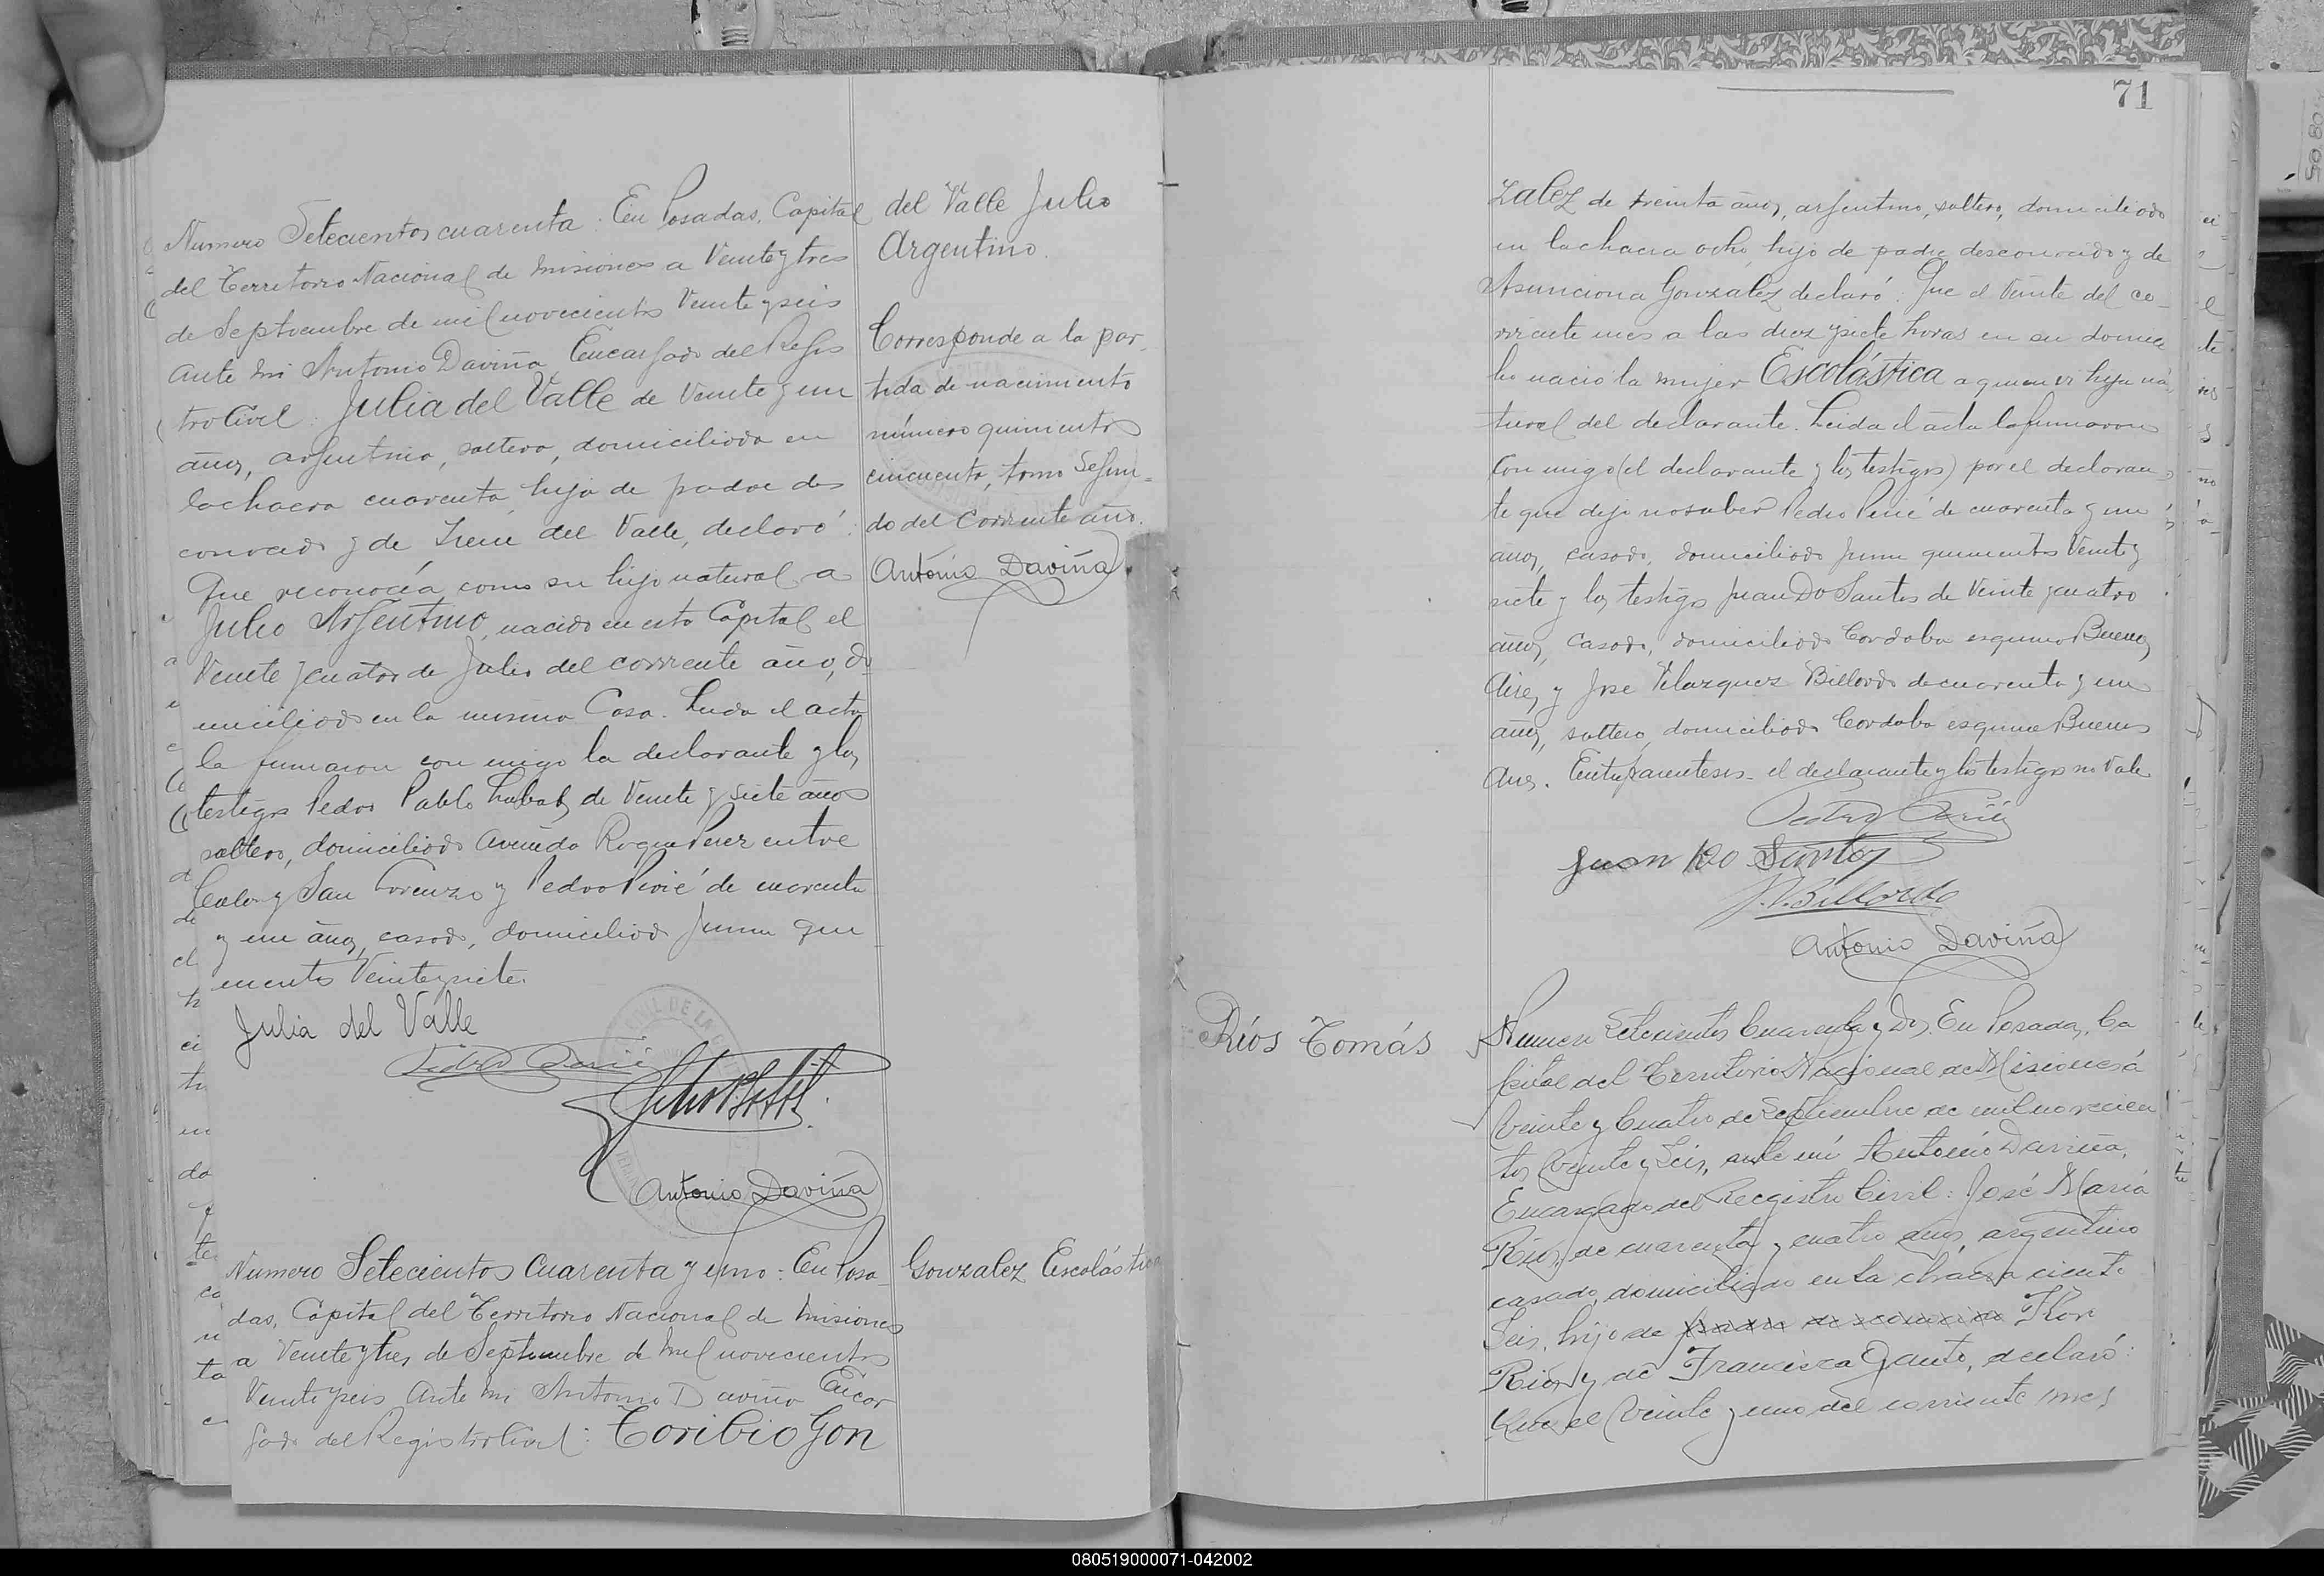 Numero Setecientos cuarenta: En Posadas, Capital
del Territorio Nacional de Misiones a Veinte y tres
de Septiembre de mil novecientos Veinte y seis
ante mi Antonio Daviña Encargado del Regis
tro Civil: Julia del Valle de Veinte y un
años, argentina, soltera, domiciliada en
la chacra cuarenta, hija de padre des
conocido y de Irene del Valle, declaró:
Que reconocía como su hijo natural a
Julio Argentino, nacido en esta Capital el
Veinte y cuatro de Julio del corriente año, do
miciliado en la misma Casa. Leida el acta
la firmaron con migo la declarante y los
testigos Pedro Pablo de Veinte y siete años
soltero, domiciliado Avenida Roque Perez entre
Colon y San Lorenzo y Pedro Pirié de cuarenta
y un años, casado, domiciliado Junin qui
nientos Veintisiete.
Julia del Valle
Antonio Daviña
Numero Setecientos Cuarenta y uno: En Posa
das, Capital del Territorio Nacional de Misiones
a Veinte y tres de Septiembre de Mil novecientos
Veinte y seis ante mi Antonio Daviña Encar
gado del Registro Civil: Toribio Gon
del Valle Julio
Argentino.
Corresponde a la par
tida de nacimiento
número quinientos
cincuenta, tomo Segun-
do del Corriente año.
Antonio Daviña
Gonzalez Escolástica
71
zalez de treinta años, argentino, soltero, domiciliado
en la chacra ocho, hijo de padre desconocido y de
Asunciona Gonzalez declaró: Que el Veinte del co-
rriente mes a las diez y siete horas en su domici
lio nacio la mujer Escolástica a quien es hija na
tural del declarante. Leida el acta la firmaron
Con migo (el declarante y los testigos) por el declaran
te que dijo no saber Pedro Pirié de cuarenta y un
años, casado, domiciliado Junin quinientos Veinte y
siete y los testigos Juan Do Santos de Veinte y cuatro
años, casado, domiciliado Cordoba esquina Buenos
Aires y Jose Velazquez Billordo de cuarenta y un
años, soltero, domiciliado Cordoba esquina Buenos
Aires. Entre parentesis - el declarante y los testigos no Vale
Juan Do Santos
J. V. Billordo
Antonio Daviña
Ríos Tomás
Numero Setecientos Cuarenta y Dos. En Posadas, Ca
pital del Territorio Nacional de Misiones á
Veinte y Cuatro de Septiembre de mil novecien
tos Veinte y Seis, ante mí Antonio Daviña,
Encargado del Registro Civil: José Maria
Rios, de cuarenta y cuatro años, argentino
casado, domiciliado en la chacra ciento
Seis, hijo de padre desconocido Flor
Rios y de Francisca Gauto, declaró:
Que el Veinte y uno del corriente mes
080519000071-042002